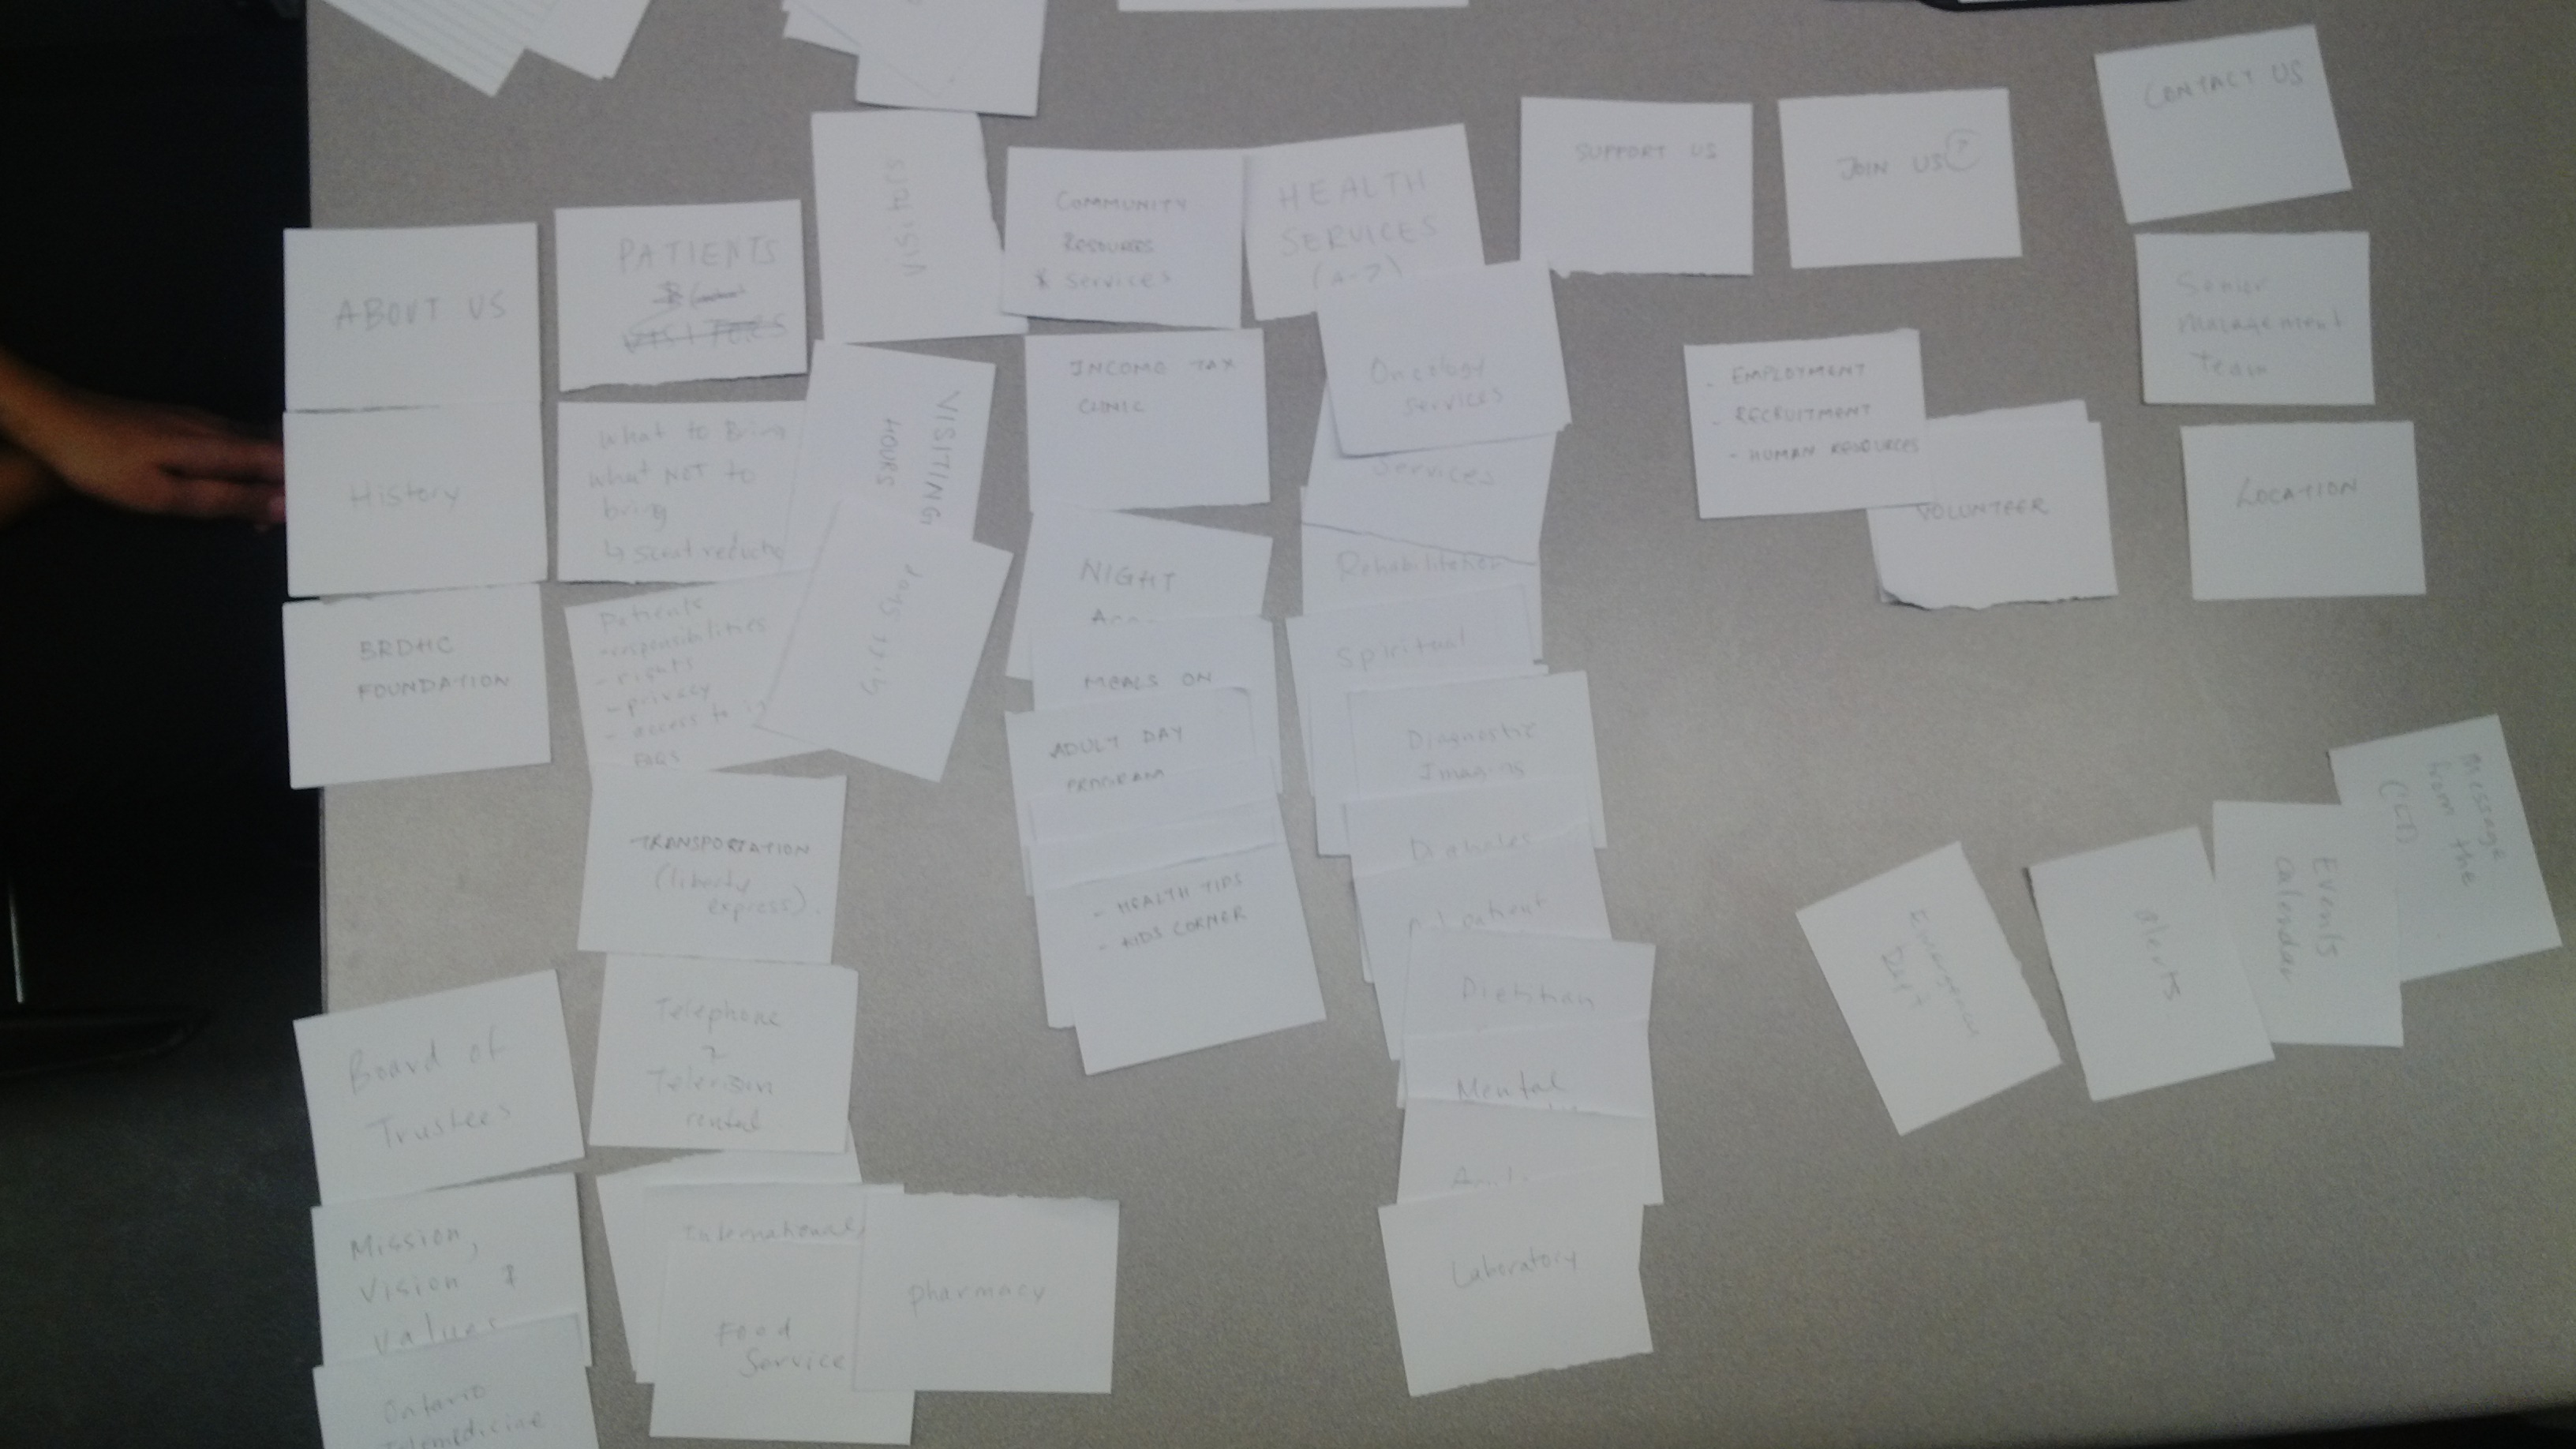 ABOUT US
History
BRDHC
FOUNDATION
Board of
Trustees
Mission,
Vision &
values
Ontario
Telemedicine
PATIENTS
&
VISITORS
What to Bring
what NOT to
bring
↳ scent reductio
Patients
- responsibilities
- rights
- privacy
- access to
FAQS
TRANSPORTATION
(liberty
express).
Telephone
&
Television
rental
International
Food
Service
pharmacy
VISITORS
VISITING
HOURS
Gift shop
COMMUNITY
RESOURCES
& Services
INCOME TAX
CLINIC
NIGHT
MEALS ON
ADULT DAY
PROGRAM
- HEALTH TIPS
- KIDS CORNER
HEALTH
SERVICES
(A-Z)
Oncology
services
Services
Rehabilitation
Spiritual
Diagnostic
Imaging
Diabetes
Dietitian
Mental
Laboratory
SUPPORT US
JOIN US ?
- EMPLOYMENT
- RECRUITMENT
- HUMAN RESOURCES
VOLUNTEER
CONTACT US
Senior
Management
Team
LOCATION
Emergency
Dept
alerts
Events
calendar
Message
from the